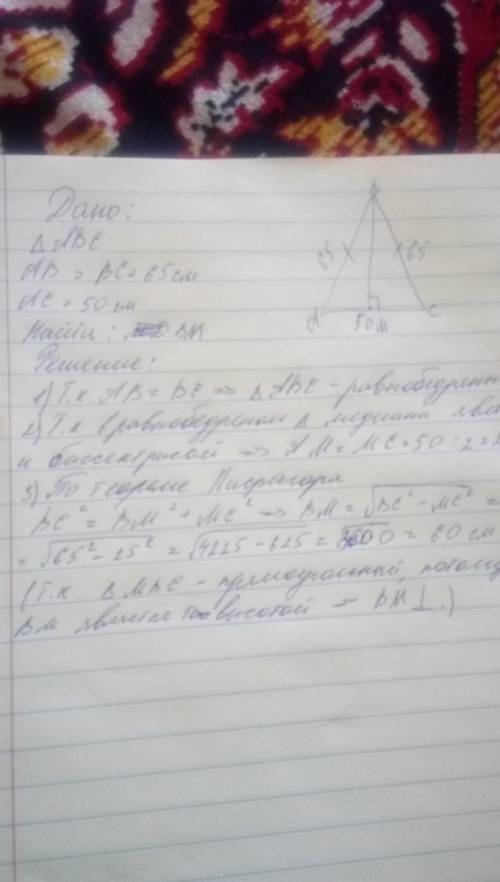 Дано:
Δ ABC
AB = BC = 65 см
AC = 50 см
Найти: BM
Решение:
1) Т.к. AB = BC => Δ ABC - равнобедрен
2) Т.к в равнобедреном Δ медиана явл
и биссектрисой => AM = MC = 50 : 2 = 2
3) По теореме Пифагора
BC² = BM² + MC² => BM = √BC² - MC² =
= √65² - 25² = √4225 - 625 = √3600 = 60 см
(Т.к. Δ MBC - прямоугольный, потому
BM является высотой - BM ⊥.)
B
65
65
A
C
50 M